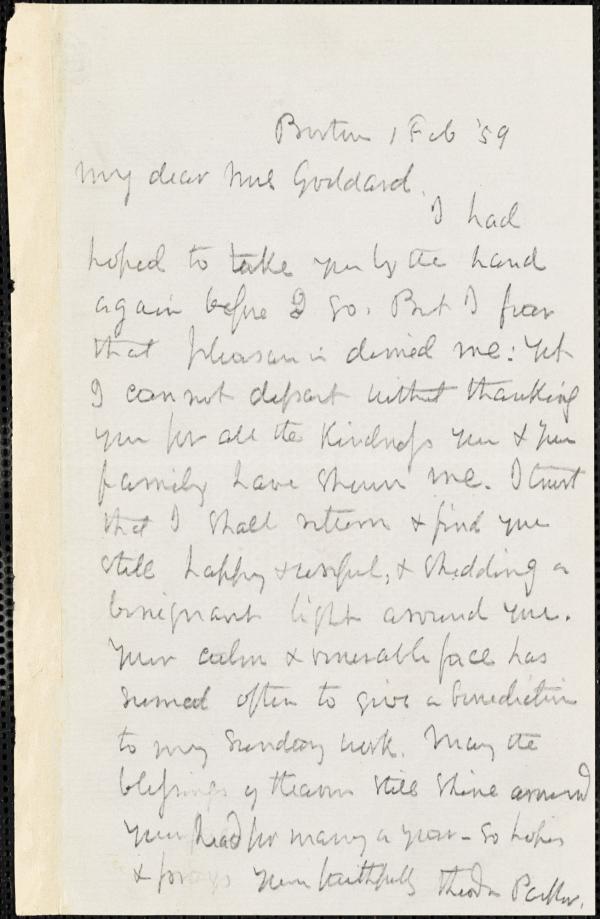 Boston 1 Feb '59
My dear Mrs Goddard.
I had
hoped to take you by the hand
again before I go. But I fear
that pleasure is denied me: Yet
I cannot depart without thanking
you for all the kindness you & your
family have shewn me. I trust
that I shall return & find you
still happy & useful, & shedding a
benignant light around you.
Your calm & venerable face has
seemed often to give a benediction
to my Sunday work. May the
blessings of Heaven still shine around
your head for many a year - so hopes
& prays yours faithfully Theodore Parker.